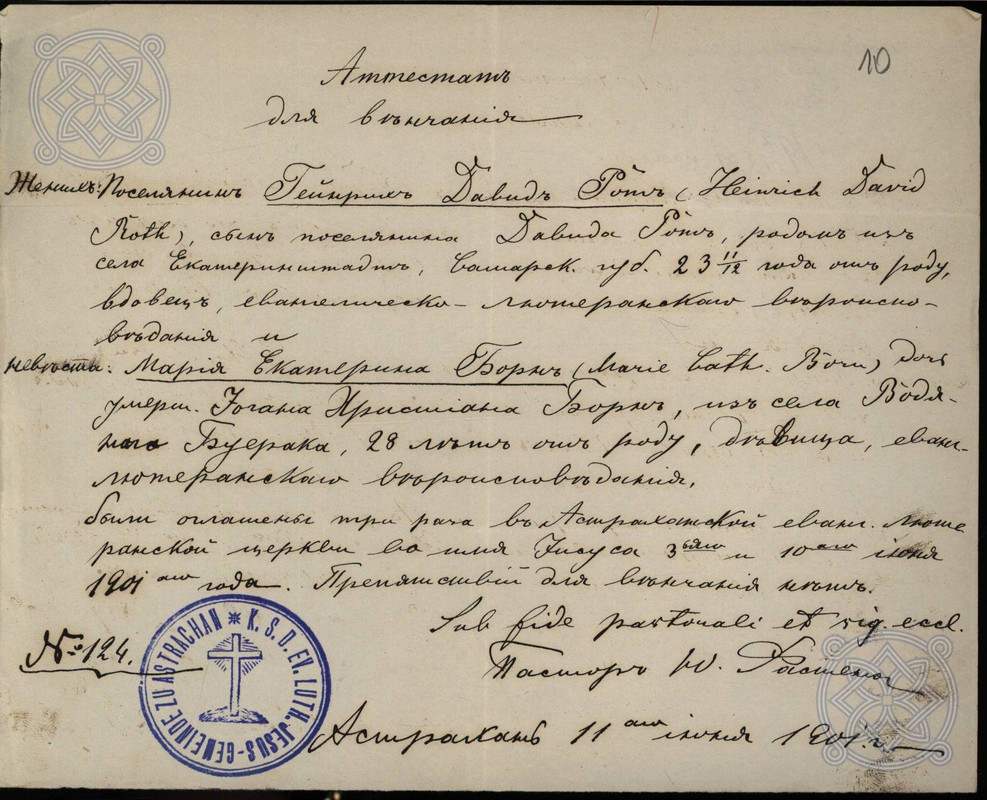 10
Аттестатъ
для вѣнчанія
Женихъ: Поселянинъ Гейнрихъ Давидъ Ротъ (Heinrich David
Roth), сынъ поселянина Давида Ротъ, родомъ изъ
села Екатериништадтъ, Самарск. губ. 23 11/12 года отъ роду,
вдовецъ, евангелическо-лютеранскаго вѣроиспо-
вѣданія и
невѣста: Марія Екатерина Борнъ (Marie Cath. Born) дочь
умерш. Іогана Христіана Борнъ, изъ села Водя-
наго Буерака, 28 лѣтъ отъ роду, дѣвица, еванг.
лютеранскаго вѣроисповѣданія,
были оглашены три раза въ Астраханской еванг. люте
ранской церкви во имя Іисуса 3ьяго и 10аго іюня
1901аго года. Препятствій для вѣнчанія нѣтъ.
Sub fide pastorali et sig. eccl.
№ 124.
Пасторъ W.
K. S. D. EV. LUTH. JESUS-GEMEINDE ZU ASTRACHAN
Астрахань 11аго іюня 1901 г.